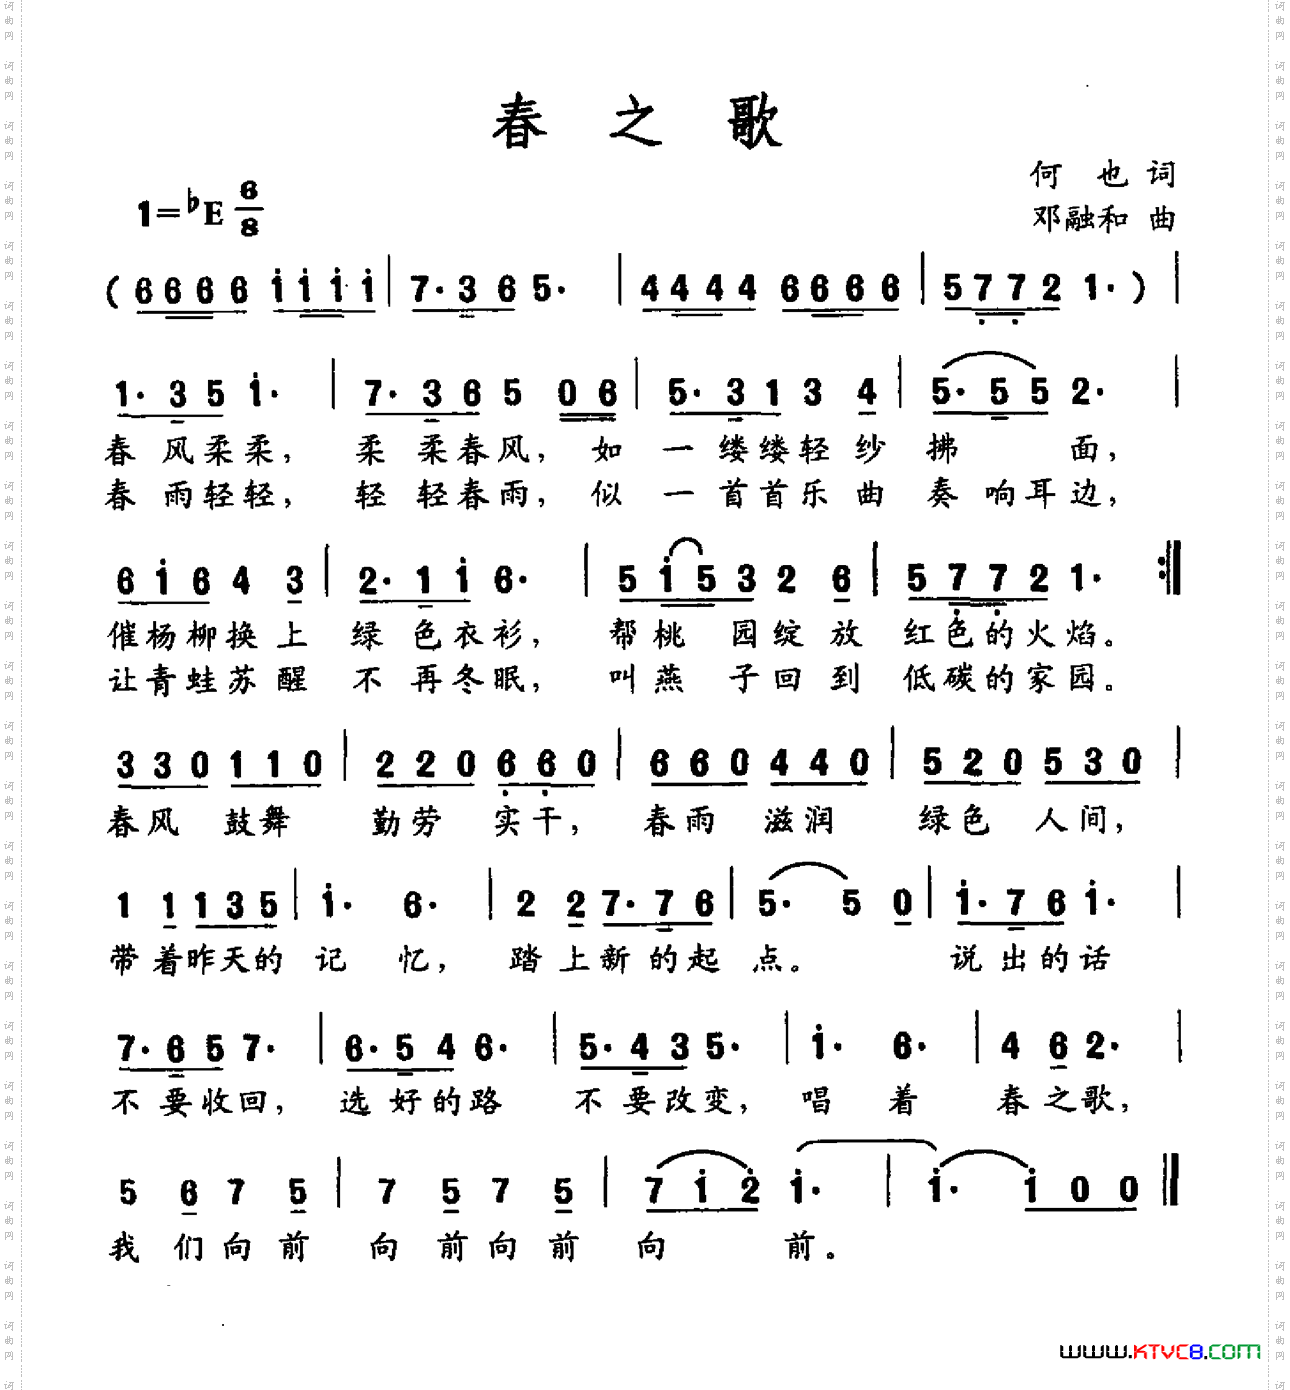 春之歌
何也词
1=♭E 6/8
邓融和曲
(6666 i i i i | 7·36 5· | 4444 6666 | 5772 1·) |
1·35 i· | 7·36 5 06 | 5·31 3 4 | 5·55 2· |
春风柔柔，柔柔春风，如一缕缕轻纱拂面，
春雨轻轻，轻轻春雨，似一首首乐曲奏响耳边，
6i6 4 3 | 2·1i 6· | 5i53 2 6 | 5772 1· :|
催杨柳换上绿色衣衫，帮桃园绽放红色的火焰。
让青蛙苏醒不再冬眠，叫燕子回到低碳的家园。
330 110 | 220 660 | 660 440 | 520 530 |
春风鼓舞勤劳实干，春雨滋润绿色人间，
1 1 135 | i· 6· | 2 2 7·76 | 5· 5 0 | i·76 i· |
带着昨天的记忆，踏上新的起点。说出的话
7·65 7· | 6·54 6· | 5·43 5· | i· 6· | 4 6 2· |
不要收回，选好的路不要改变，唱着春之歌，
5 6 7 5 | 7 5 7 5 | 7i2 i· | i· i00 ||
我们向前向前向前向前。
www.KTVC8.COM